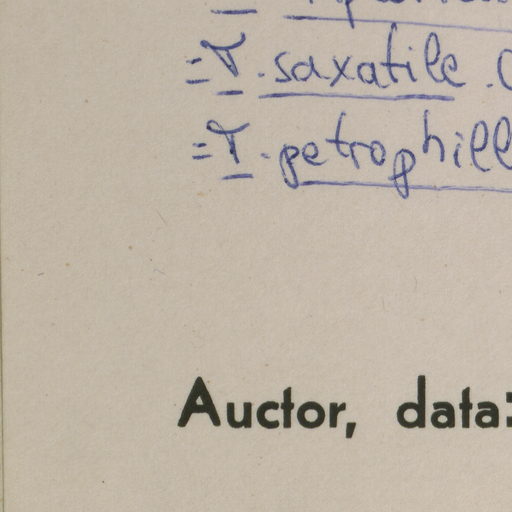 = T. saxatile
= T. petrophill
Auctor, data: